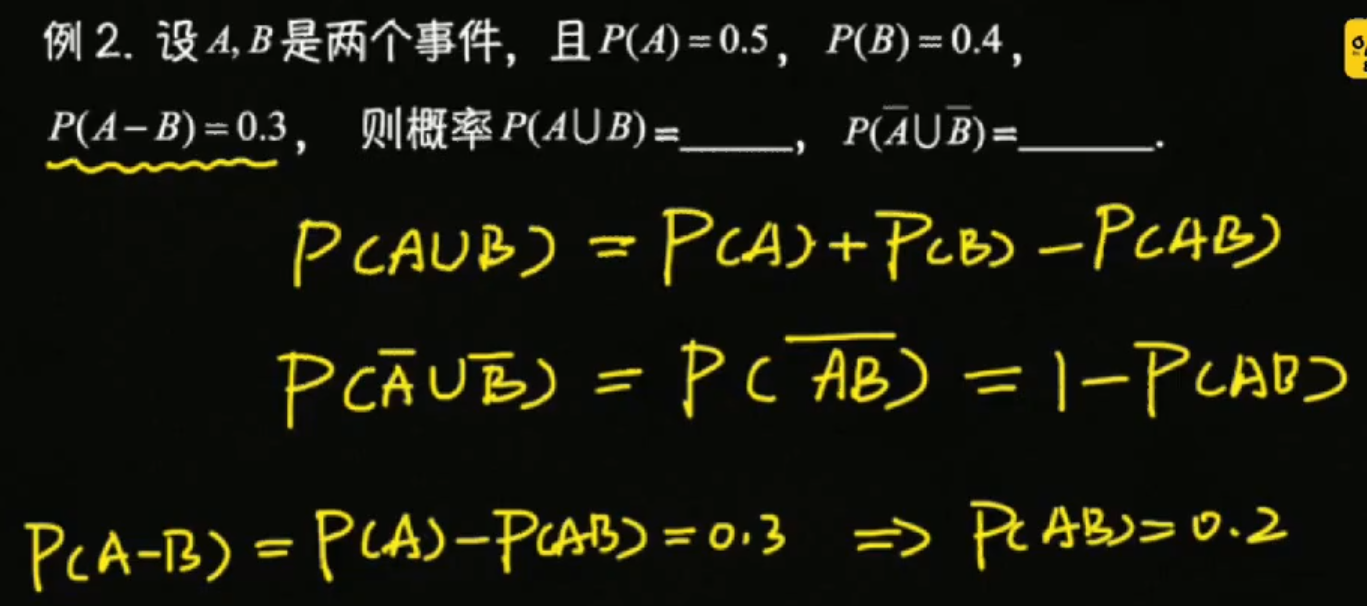 例2. 设A, B是两个事件，且P(A)=0.5，P(B)=0.4，
P(A−B)=0.3，则概率P(A∪B)=______，P(A̅∪B̅)=______.
P(A∪B) = P(A)+P(B)−P(AB)
P(A̅∪B̅) = P(A̅B̅) = 1−P(AB)
P(A−B) = P(A)−P(AB)=0.3 ⇒ P(AB)=0.2